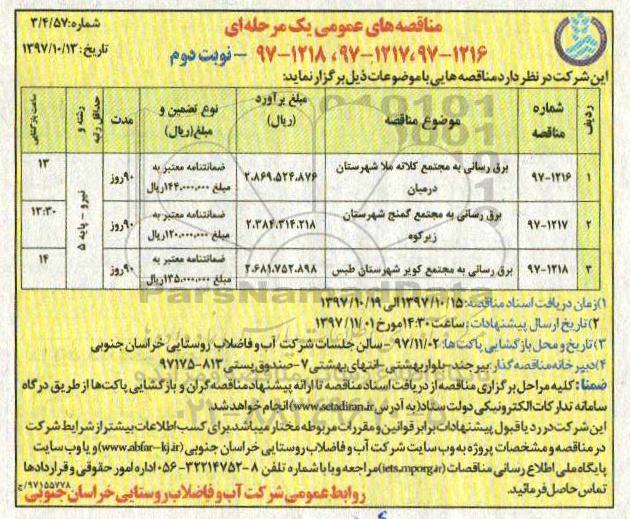 مناقصه های عمومی یک مرحله ای
شماره: ۳/۴/۵۷
۹۷-۱۲۱۶، ۹۷-۱۲۱۷، ۹۷-۱۲۱۸ - نوبت دوم
تاریخ: ۱۳۹۷/۱۰/۱۳
این شرکت در نظر دارد مناقصه هایی با موضوعات ذیل برگزار نماید:
ردیف شماره مناقصه موضوع مناقصه مبلغ برآورد (ریال) نوع تضمین و مبلغ (ریال) مدت رشته و حداقل رتبه ساعت بازگشایی
۱ ۹۷-۱۲۱۶ برق رسانی به مجتمع کلاته ملا شهرستان درمیان ۲.۸۶۹.۵۲۴.۸۷۶ ضمانتنامه معتبر به مبلغ ۱۴۴.۰۰۰.۰۰۰ ریال ۹۰روز نیرو - پایه ۵ ۱۳
۲ ۹۷-۱۲۱۷ برق رسانی به مجتمع گمنج شهرستان زیرکوه ۲.۳۸۴.۳۱۴.۲۱۸ ضمانتنامه معتبر به مبلغ ۱۲۰.۰۰۰.۰۰۰ ریال ۹۰روز ۱۳:۳۰
۳ ۹۷-۱۲۱۸ برق رسانی به مجتمع کویر شهرستان طبس ۲.۶۸۱.۷۵۲.۸۹۸ ضمانتنامه معتبر به مبلغ ۱۳۵.۰۰۰.۰۰۰ ریال ۹۰روز ۱۴
۱)زمان دریافت اسناد مناقصه: ۱۳۹۷/۱۰/۱۵ الی ۱۳۹۷/۱۰/۱۹
۲)تاریخ ارسال پیشنهادات: ساعت ۱۴:۳۰ مورخ ۱۳۹۷/۱۱/۰۱
۳)تاریخ و محل بازگشایی پاکت ها: ۹۷/۱۱/۰۲ - سالن جلسات شرکت آب و فاضلاب روستایی خراسان جنوبی
۴)دبیرخانه مناقصه گذار: بیرجند- بلوار بهشتی- انتهای بهشتی ۷- صندوق پستی ۸۱۳-۹۷۱۷۵
ضمنا: کلیه مراحل برگزاری مناقصه از دریافت اسناد مناقصه تا ارائه پیشنهاد مناقصه گران و بازگشایی پاکت ها از طریق درگاه
سامانه تدارکات الکترونیکی دولت ستاد (به آدرس www.setadiran.ir) انجام خواهد شد.
این شرکت در رد یا قبول پیشنهادات برابر قوانین و مقررات مربوطه مختار میباشد. برای کسب اطلاعات بیشتر از شرایط شرکت
در مناقصه و مشخصات پروژه به وب سایت شرکت آب و فاضلاب روستایی خراسان جنوبی (www.abfar-kj.ir) و یا وب سایت
پایگاه ملی اطلاع رسانی مناقصات (iets.mporg.ir) مراجعه و یا با شماره تلفن ۸-۳۲۲۱۴۷۵۲-۰۵۶ اداره امور حقوقی و قراردادها
تماس حاصل فرمائید.
روابط عمومی شرکت آب و فاضلاب روستایی خراسان جنوبی
۹۷۱۵۵۷۷۸/ج
ParsNamadData